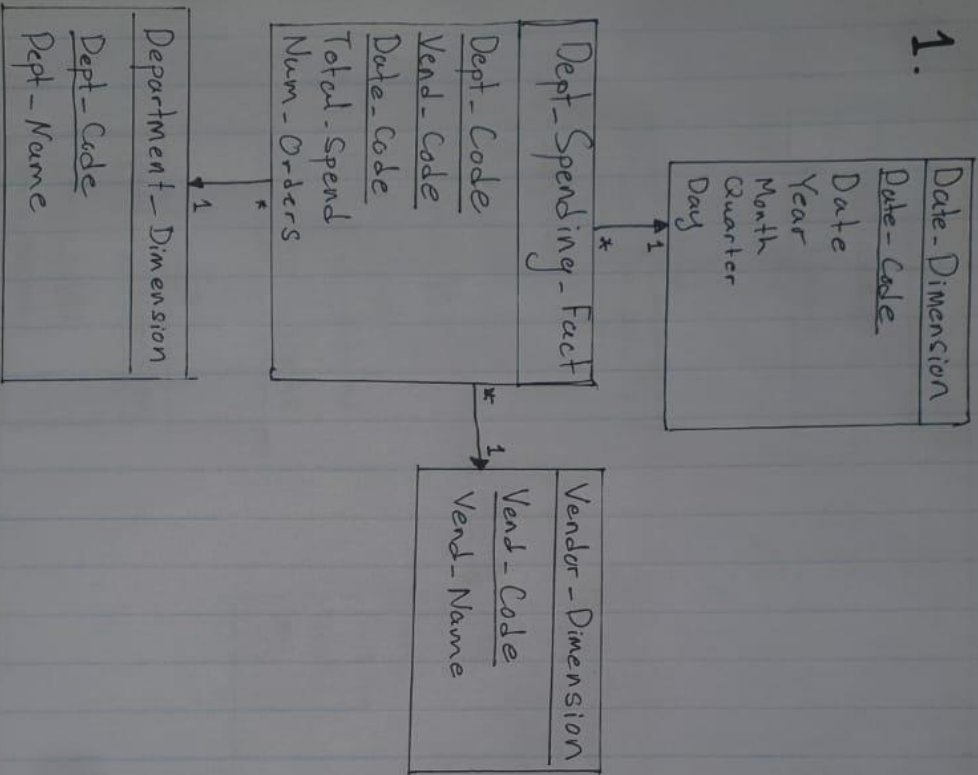 1.
Date_Dimension
Date_Code
Date
Year
Month
Quarter
Day
1
*
Dept_Spending_Fact
Dept_Code
Vend_Code
Date_Code
Total_Spend
Num_Orders
*
1
Vendor_Dimension
Vend_Code
Vend_Name
*
1
Department_Dimension
Dept_Code
Dept_Name